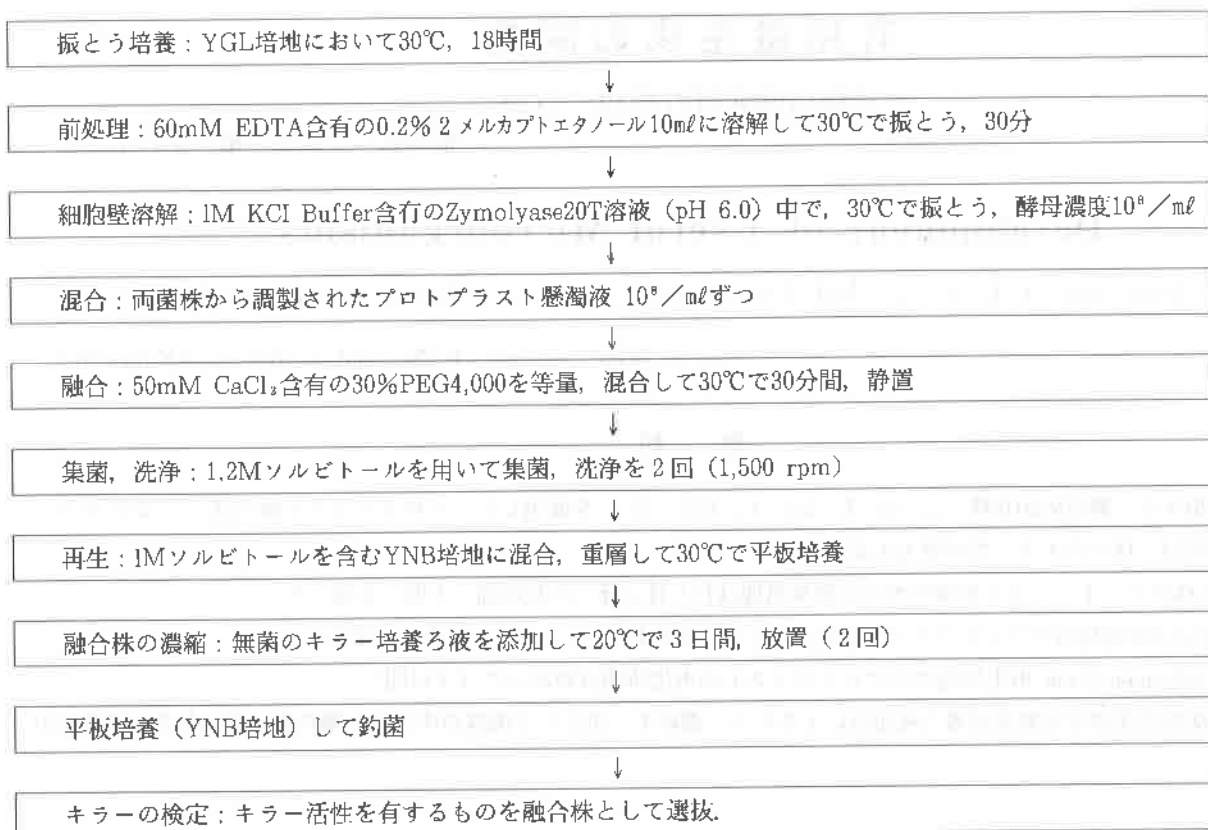 振とう培養：YGL培地において30℃，18時間
↓
前処理：60mM EDTA含有の0.2% 2メルカプトエタノール10mℓに溶解して30℃で振とう，30分
↓
細胞壁溶解：1M KCl Buffer含有のZymolyase20T溶液（pH 6.0）中で，30℃で振とう，酵母濃度10⁸／mℓ
↓
混合：両菌株から調製されたプロトプラスト懸濁液 10⁸／mℓずつ
↓
融合：50mM CaCl₂含有の30%PEG4,000を等量，混合して30℃で30分間，静置
↓
集菌，洗浄：1.2Mソルビトールを用いて集菌，洗浄を2回（1,500 rpm）
↓
再生：1Mソルビトールを含むYNB培地に混合，重層して30℃で平板培養
↓
融合株の濃縮：無菌のキラー培養ろ液を添加して20℃で3日間，放置（2回）
↓
平板培養（YNB培地）して釣菌
↓
キラーの検定：キラー活性を有するものを融合株として選抜．